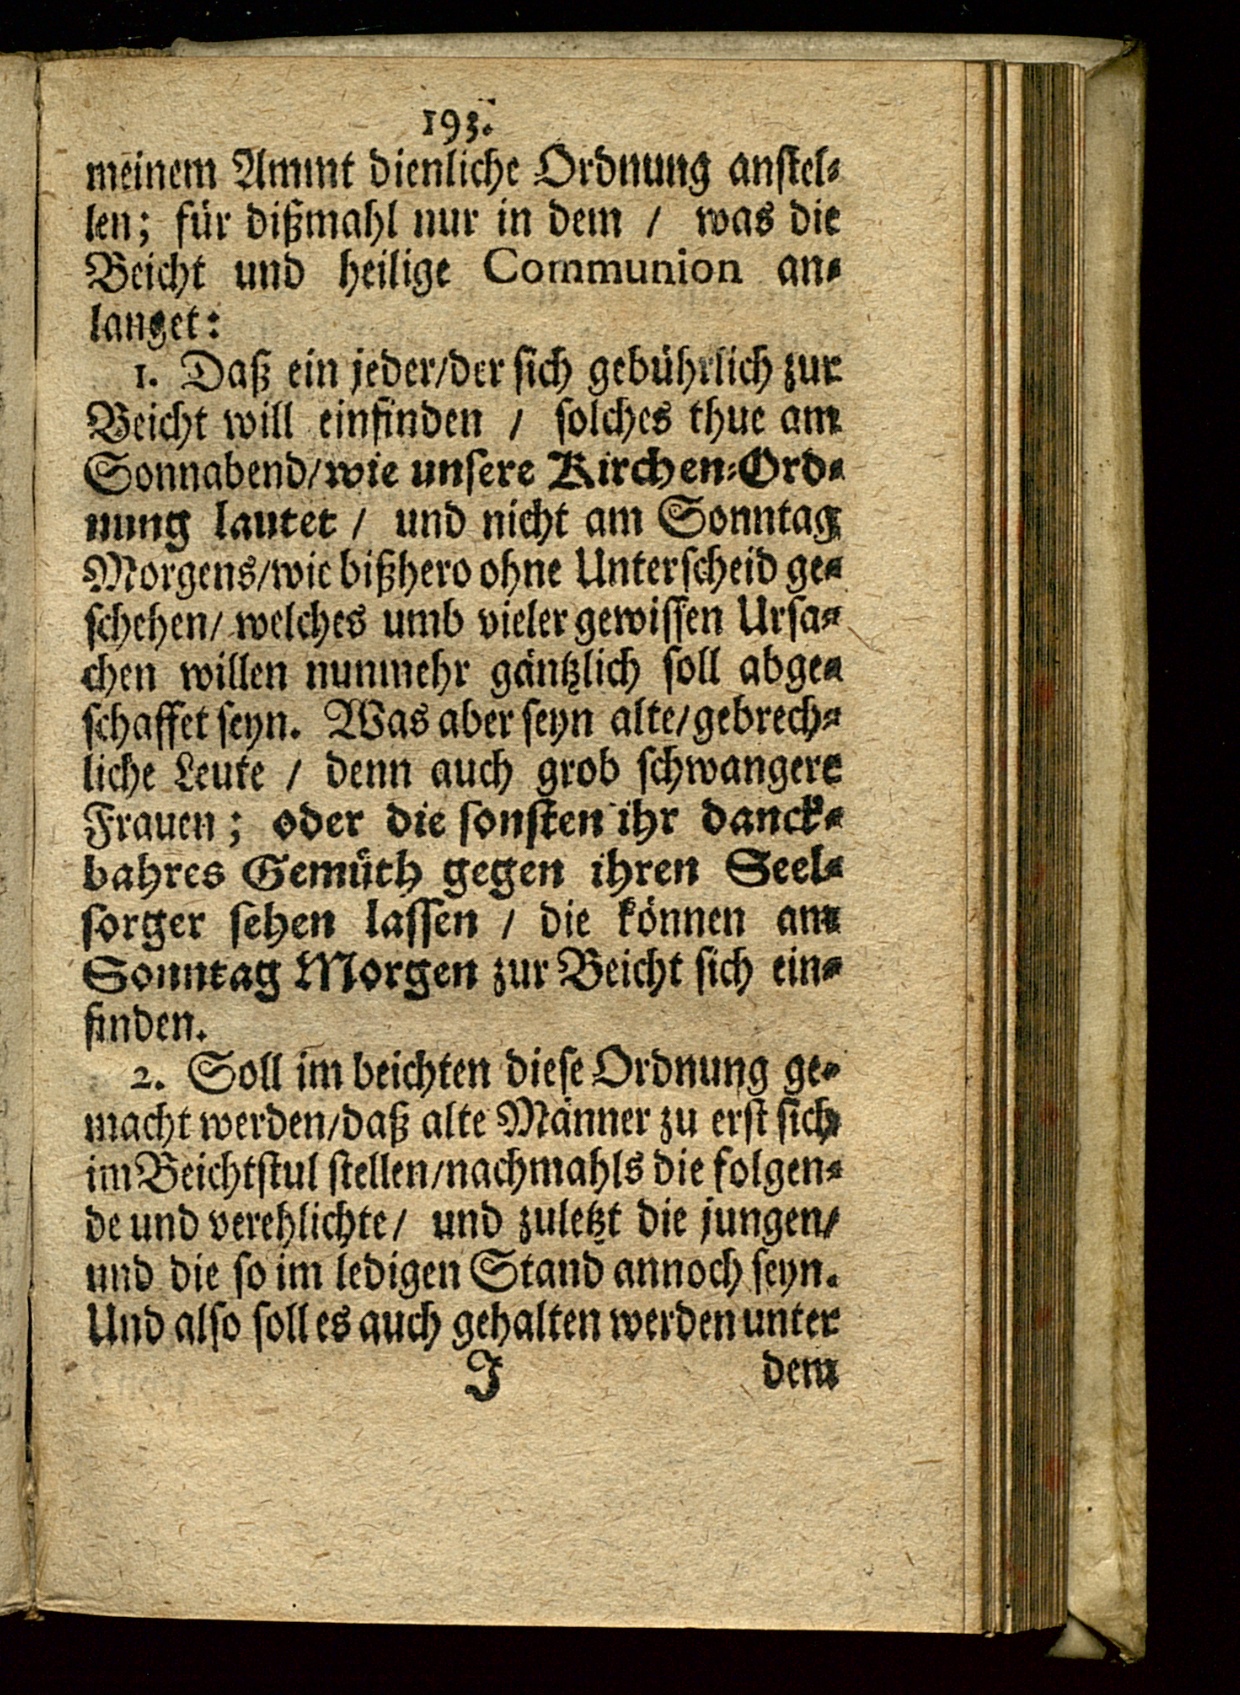 193.
meinem Ammt dienliche Ordnung anstel-
len; für dißmahl nur in dem / was die
Beicht und heilige Communion an-
langet:
1. Daß ein jeder/der sich gebührlich zur
Beicht will einfinden / solches thue am
Sonnabend/wie unsere Kirchen-Ord-
nung lautet / und nicht am Sonntag
Morgens/wie bißhero ohne Unterscheid ge-
schehen/ welches umb vieler gewissen Ursa-
chen willen nunmehr gäntzlich soll abge-
schaffet seyn. Was aber seyn alte/gebrech-
liche Leute / denn auch grob schwangere
Frauen; oder die sonsten ihr danck-
bahres Gemüth gegen ihren Seel-
sorger sehen lassen / die können am
Sonntag Morgen zur Beicht sich ein-
finden.
2. Soll im beichten diese Ordnung ge-
macht werden/daß alte Männer zu erst sich
im Beichtstul stellen/nachmahls die folgen-
de und verehlichte/ und zuletzt die jungen/
und die so im ledigen Stand annoch seyn.
Und also soll es auch gehalten werden unter
J dem